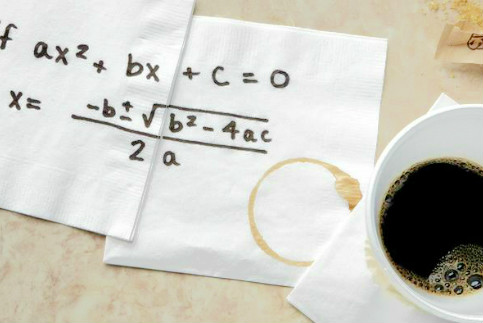 If ax² + bx + c = 0
x = -b ± √b² - 4ac
2a